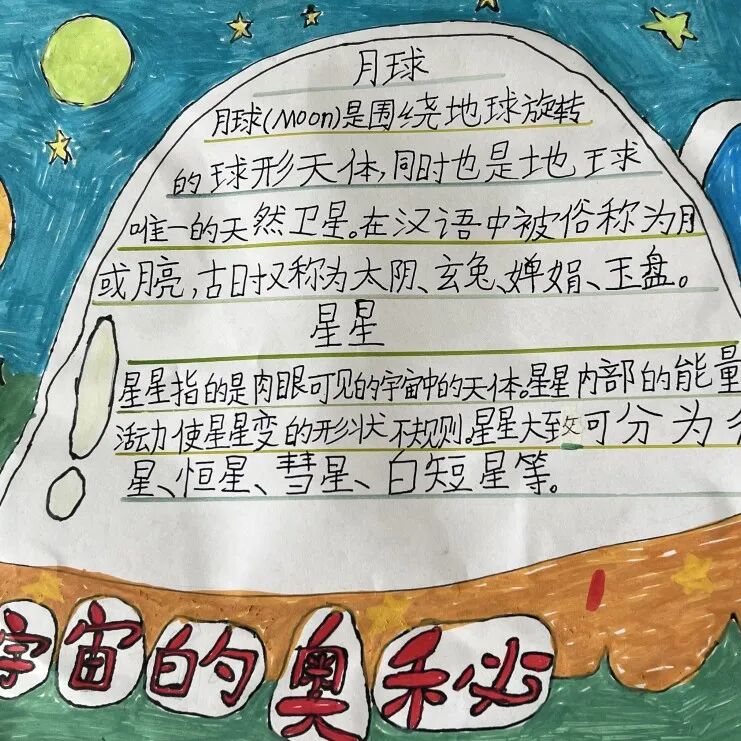 月球
月球(Moon)是围绕地球旋转
的球形天体,同时也是地球
唯一的天然卫星。在汉语中被俗称为月
或月亮,古时又称为太阴、玄兔、婵娟、玉盘。
星星
星星指的是肉眼可见的宇宙中的天体。星星内部的能量
活动使星星变的形状不规则。星星大致可分为行
星、恒星、彗星、白短星等。
宇宙的奥秘